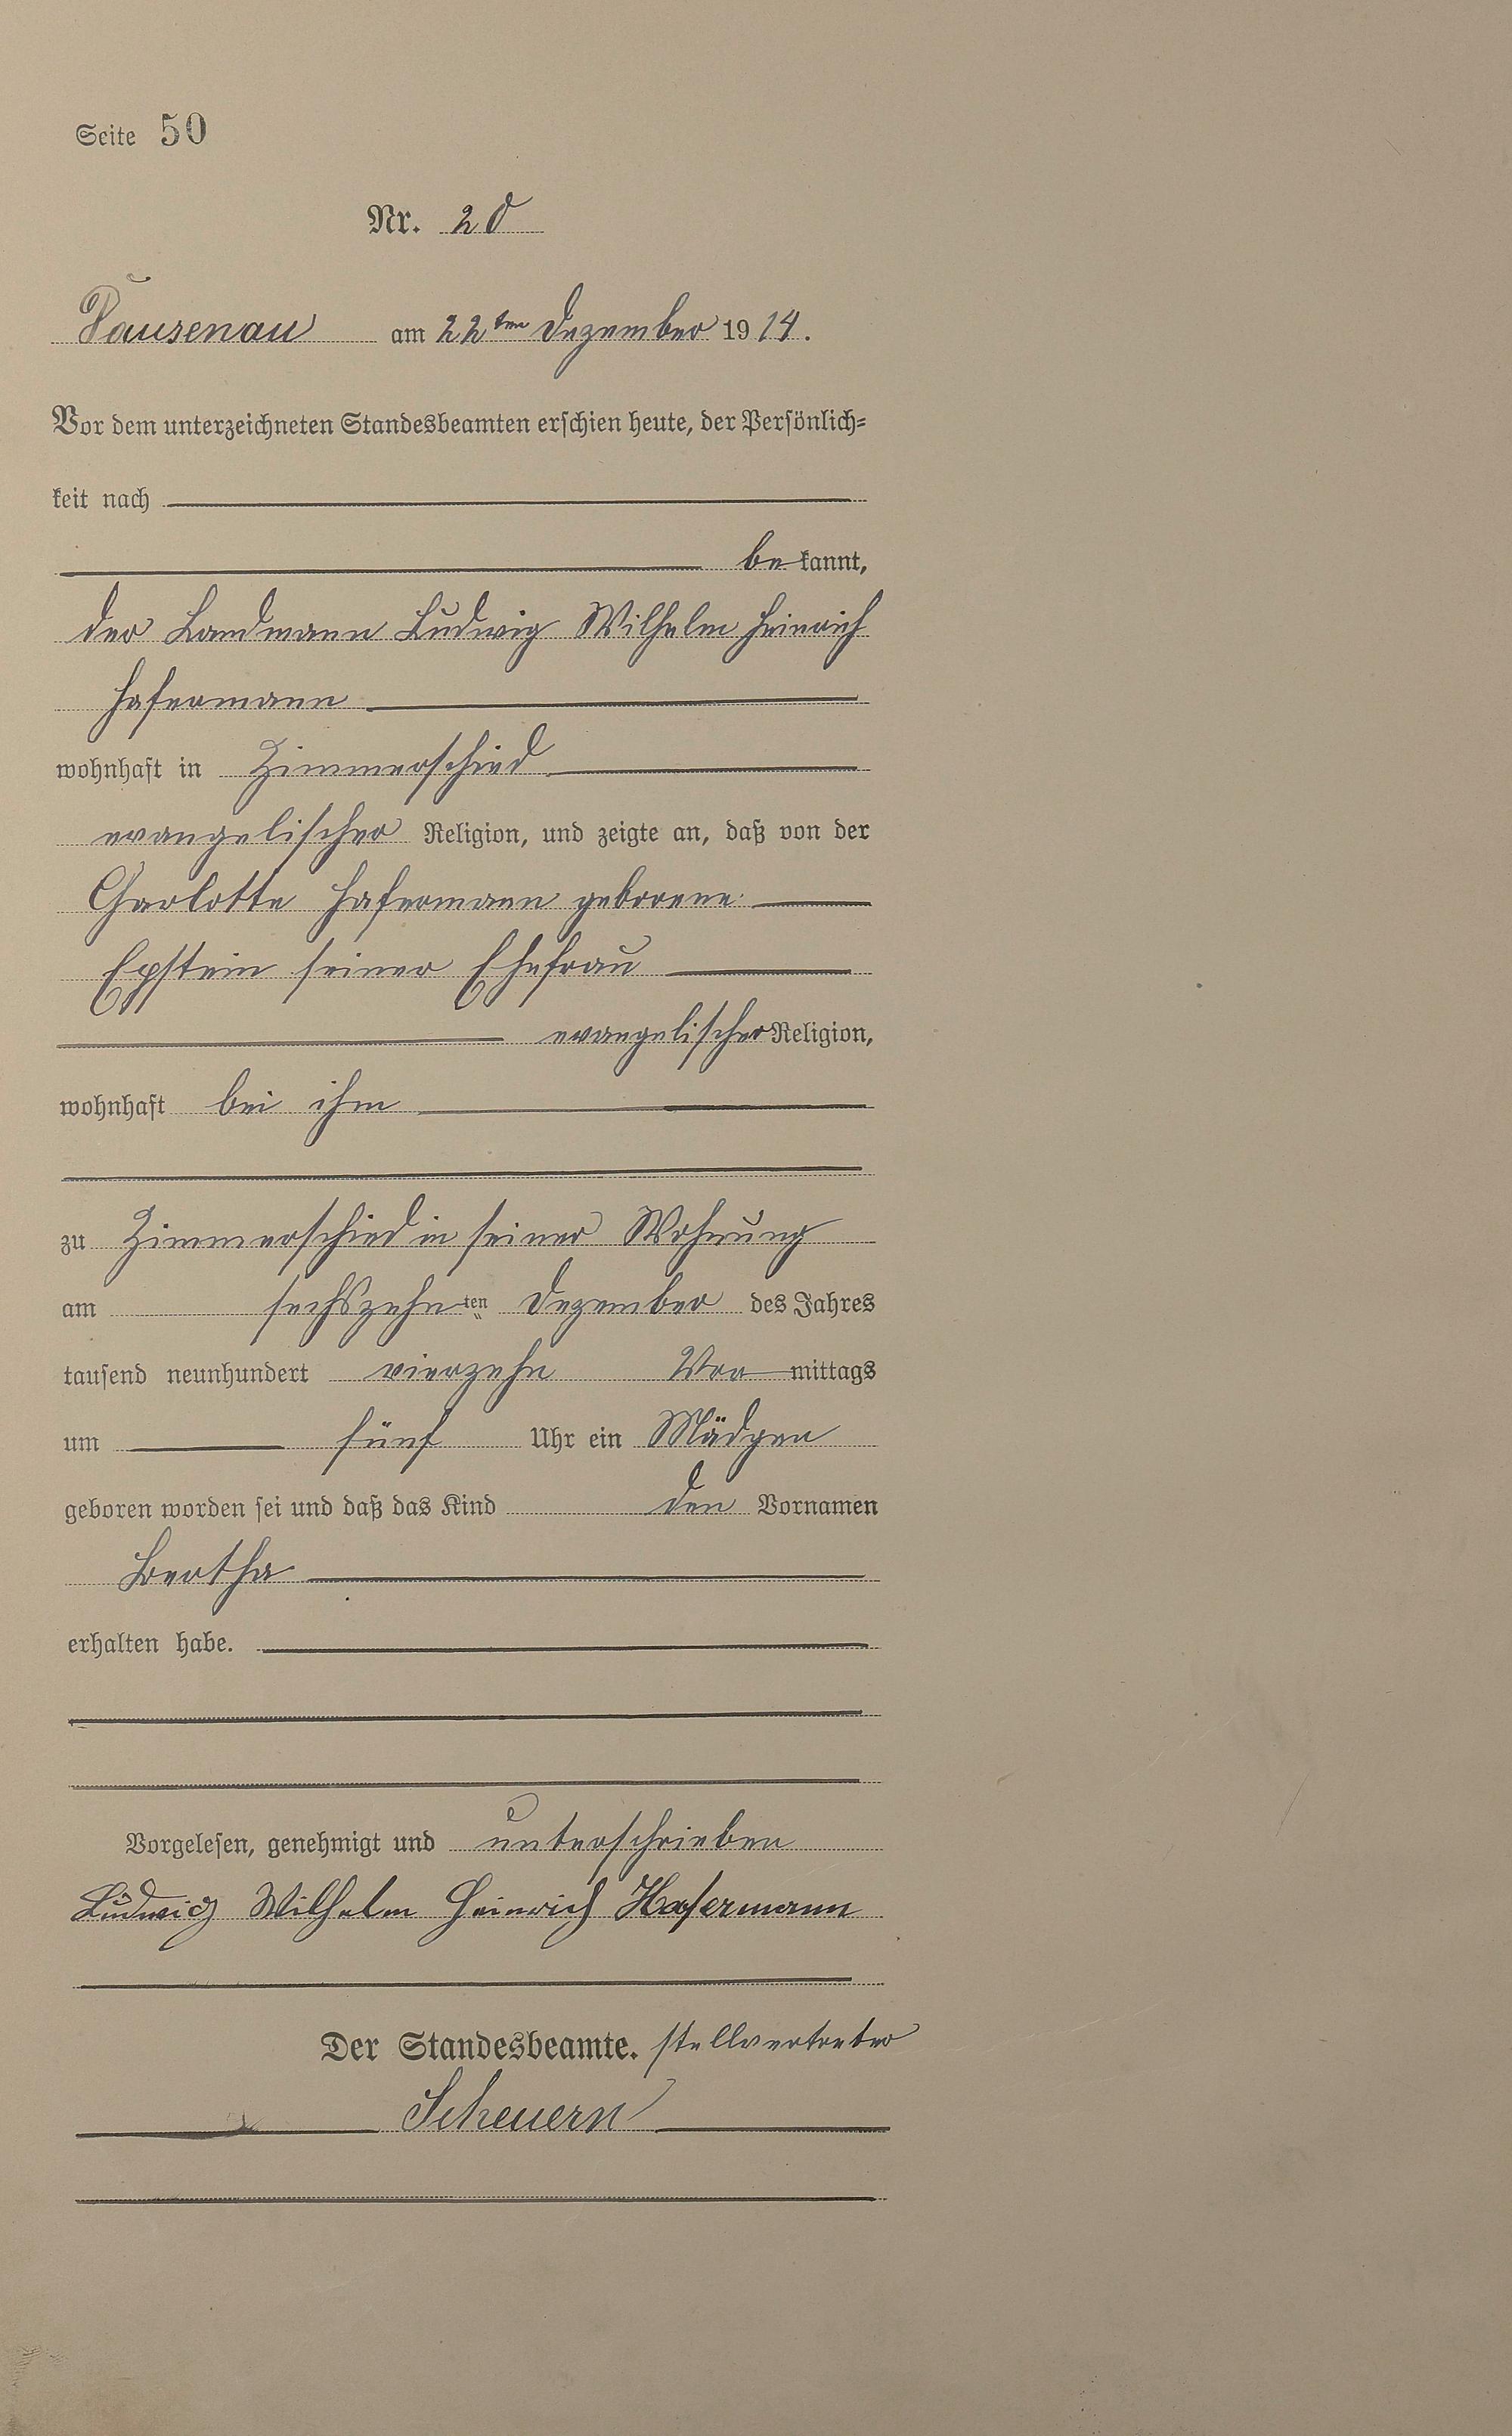 Seite 50
Nr. 20
Dausenau am 22ten Dezember 1914.
Vor dem unterzeichneten Standesbeamten erschien heute, der Persönlich=
keit nach
bekannt,
der Landmann Ludwig Wilhelm Heinrich
Hafermann
wohnhaft in Zimmerschied
evangelischer Religion, und zeigte an, daß von der
Charlotte Hafermann geborene
Epstein seiner Ehefrau
evangelischer Religion,
wohnhaft bei ihm
zu Zimmerschied in seiner Wohnung
am sechszehnten Dezember des Jahres
tausend neunhundert vierzehn Vormittags
um fünf Uhr ein Mädgen
geboren worden sei und daß das Kind den Vornamen
Bertha
erhalten habe.
Vorgelesen, genehmigt und unterschrieben
Ludwig Wilhelm Heinrich Hafermann
Der Standesbeamte. stellvertreter
Scheuern